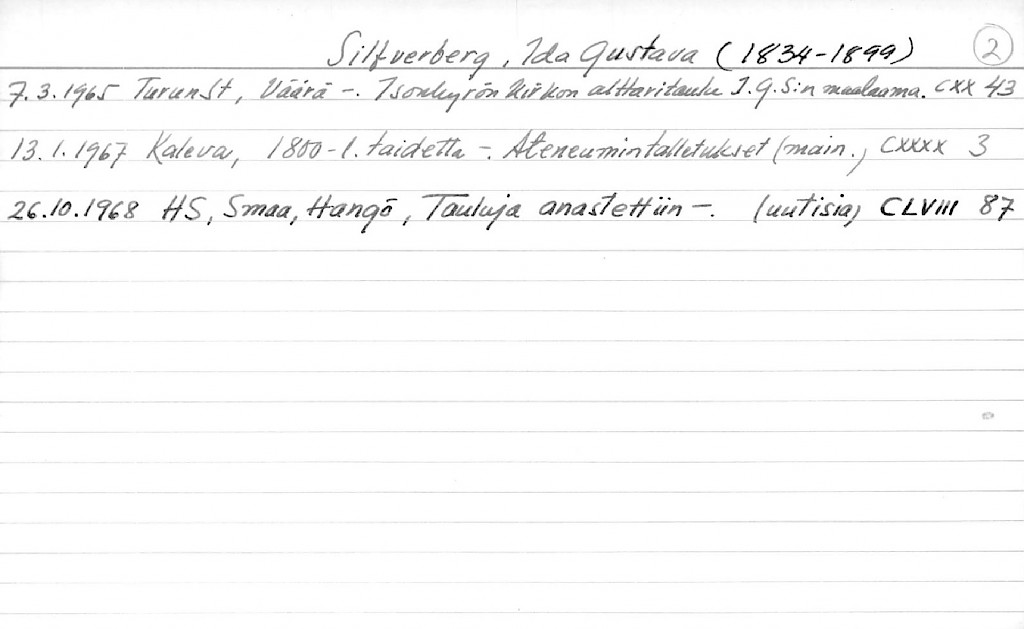 Silfverberg, Ida Gustava (1834-1899) 2
7.3.1965 Turun St, Väärä -. Isonkyrön kirkon alttaritaulu I.G.S:n maalaama. CXX 43
13.1.1967 Kaleva, 1800-l. taidetta -. Ateneumin talletukset (main.) CXXXX 3
26.10.1968 HS, Smaa, Hangö, Tauluja anastettiin -. (uutisia) CLVIII 87